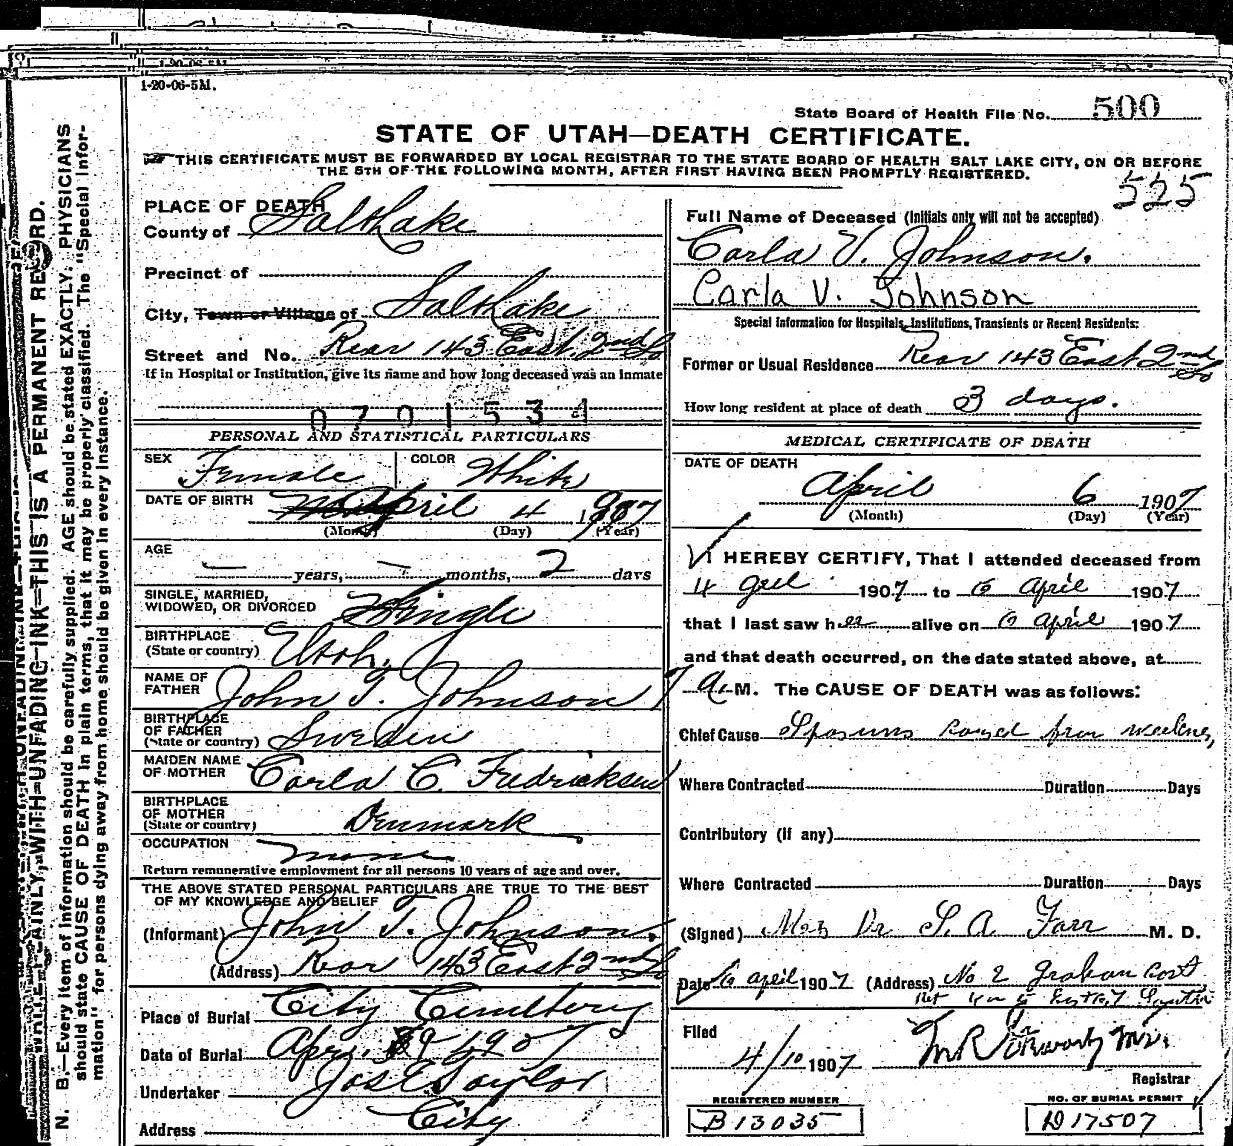 1-20-06-5M.
State Board of Health File No. 500
STATE OF UTAH—DEATH CERTIFICATE.
THIS CERTIFICATE MUST BE FORWARDED BY LOCAL REGISTRAR TO THE STATE BOARD OF HEALTH SALT LAKE CITY, ON OR BEFORE
THE 5TH OF THE FOLLOWING MONTH, AFTER FIRST HAVING BEEN PROMPTLY REGISTERED.
525
N. B.—Every item of information should be carefully supplied. AGE should be stated EXACTLY. PHYSICIANS
should state CAUSE OF DEATH in plain terms, that it may be properly classified. The "Special Infor-
mation" for persons dying away from home should be given in every instance.
WITH UNFADING INK—THIS IS A PERMANENT RECORD.
PLACE OF DEATH
County of Salt Lake
Precinct of
City, Town or Village of Salt Lake
Street and No. Rear 143 East 2nd So
If in Hospital or Institution, give its name and how long deceased was an inmate
0701534
PERSONAL AND STATISTICAL PARTICULARS
SEX Female COLOR White
DATE OF BIRTH April 4 1907
(Month) (Day) (Year)
AGE
— years, — months, 2 days
SINGLE, MARRIED,
WIDOWED, OR DIVORCED Single
BIRTHPLACE
(State or country) Utah,
NAME OF
FATHER John T. Johnson
BIRTHPLACE
OF FATHER
(State or country) Sweden
MAIDEN NAME
OF MOTHER Carla C. Fredricksen
BIRTHPLACE
OF MOTHER
(State or country) Denmark
OCCUPATION none
Return remunerative employment for all persons 10 years of age and over.
THE ABOVE STATED PERSONAL PARTICULARS ARE TRUE TO THE BEST
OF MY KNOWLEDGE AND BELIEF
(Informant) John T. Johnson.
(Address) Rear 143 East 2nd So
Place of Burial City Cemetery
Date of Burial Apr. 9 1907
Undertaker Jos E Taylor
Address City
Full Name of Deceased (Initials only will not be accepted)
Carla V. Johnson.
Carla V. Johnson
Special Information for Hospitals, Institutions, Transients or Recent Residents:
Former or Usual Residence Rear 143 East 2nd So
How long resident at place of death 3 days.
MEDICAL CERTIFICATE OF DEATH
DATE OF DEATH
April 6 1907
(Month) (Day) (Year)
I HEREBY CERTIFY, That I attended deceased from
4 1907 to 6 April 1907
that I last saw her alive on 6 April 1907
and that death occurred, on the date stated above, at
7 A. M. The CAUSE OF DEATH was as follows:
Chief Cause Spasms from
Where Contracted Duration Days
Contributory (if any)
Where Contracted Duration Days
(Signed) Mrs Dr S. A Farr M. D.
Date 6 april 1907 (Address) No 2
Filed
4/10 1907
Registrar
REGISTERED NUMBER
B 13035
NO. OF BURIAL PERMIT
D 17507